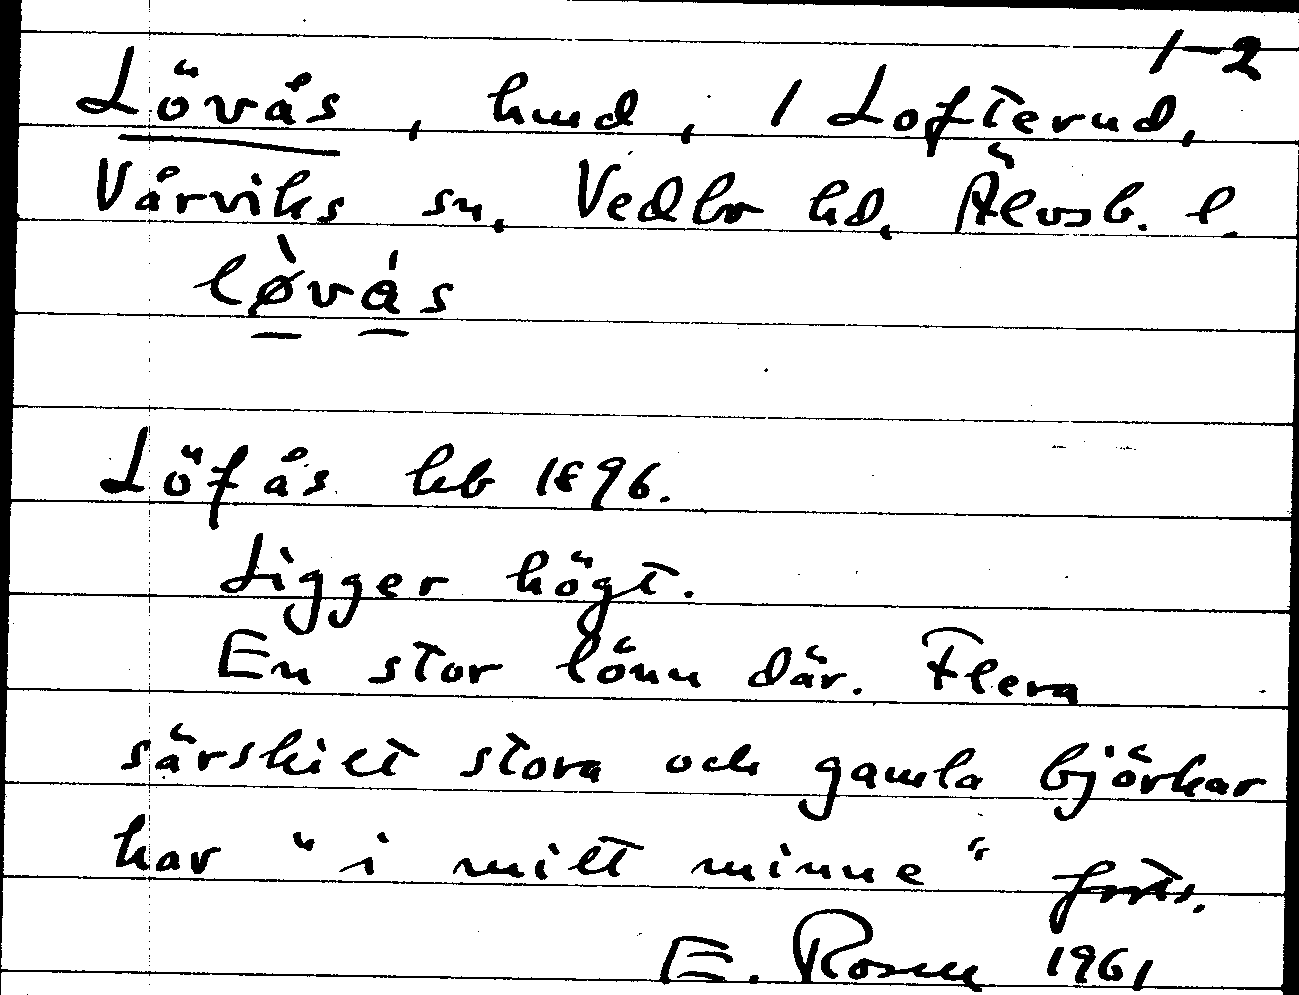 1-2
Lövås, hmd, 1 Lofterud,
Vårviks sn, Vedbo hd, Älvsb. l.
lø̀vá̊s
Löfås hb 1896.
Ligger högt.
En stor lönn där. Flera
särskilt stora och gamla björkar
har "i mitt minne" forts.
E. Rosell 1961